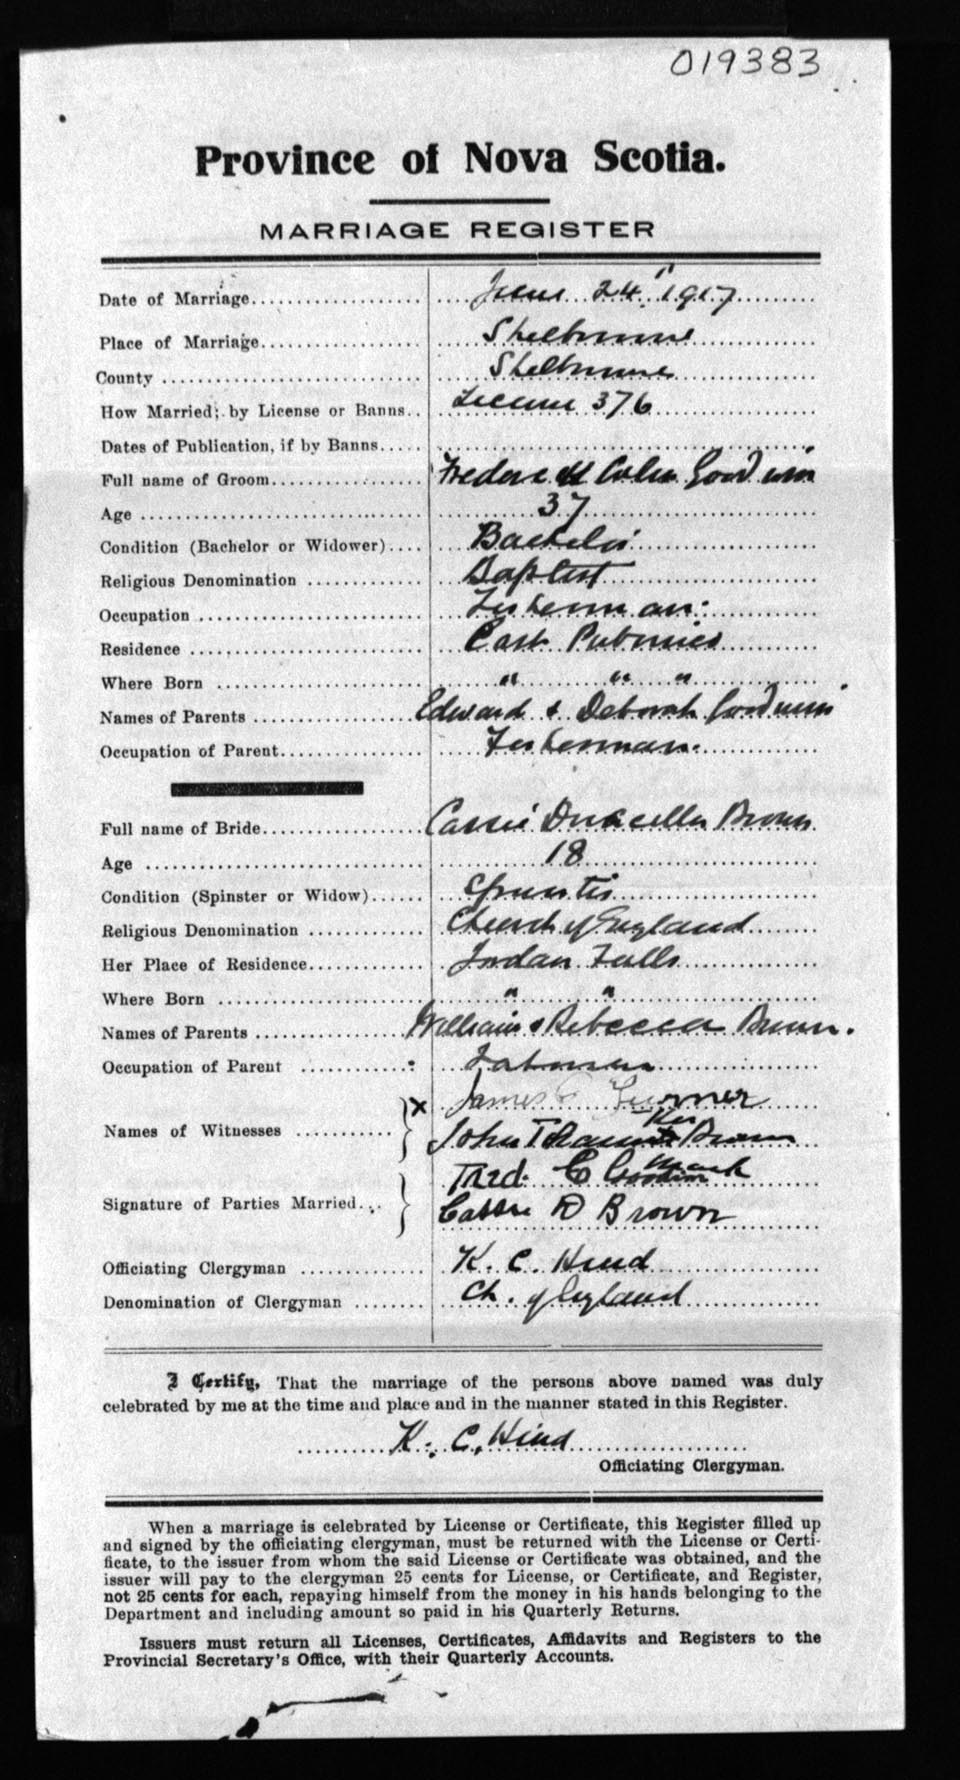 019383
Province of Nova Scotia.
MARRIAGE REGISTER
Date of Marriage.................... June 24" 1917
Place of Marriage.................. Shelburne
County ............................. Shelburne
How Married; by License or Banns.. License 376
Dates of Publication, if by Banns.....
Full name of Groom................. Goodwin
Age ................................ 37
Condition (Bachelor or Widower).... Bachelor
Religious Denomination ............ Baptist
Occupation ......................... Fisherman.
Residence .......................... East Pubnico
Where Born ....................... " " "
Names of Parents ................. Edward & Deborah Goodwin
Occupation of Parent............... Fisherman.
Full name of Bride.................. Cassie Drucella Brown
Age ................................ 18
Condition (Spinster or Widow)...... Spinster
Religious Denomination ............ Church of England
Her Place of Residence............. Jordan Falls
Where Born ....................... " "
Names of Parents ................. William & Rebecca Brown.
Occupation of Parent ............
X James Turner
Names of Witnesses ...........
her
John Brown
mark
Fred. C Goodwin
Signature of Parties Married...
Cassie D Brown
Officiating Clergyman .............. K. C. Hind
Denomination of Clergyman ........ Ch. of England
I Certify, That the marriage of the persons above named was duly
celebrated by me at the time and place and in the manner stated in this Register.
K. C. Hind
Officiating Clergyman.
When a marriage is celebrated by License or Certificate, this Register filled up
and signed by the officiating clergyman, must be returned with the License or Certi-
ficate, to the issuer from whom the said License or Certificate was obtained, and the
issuer will pay to the clergyman 25 cents for License, or Certificate, and Register,
not 25 cents for each, repaying himself from the money in his hands belonging to the
Department and including amount so paid in his Quarterly Returns.
Issuers must return all Licenses, Certificates, Affidavits and Registers to the
Provincial Secretary's Office, with their Quarterly Accounts.